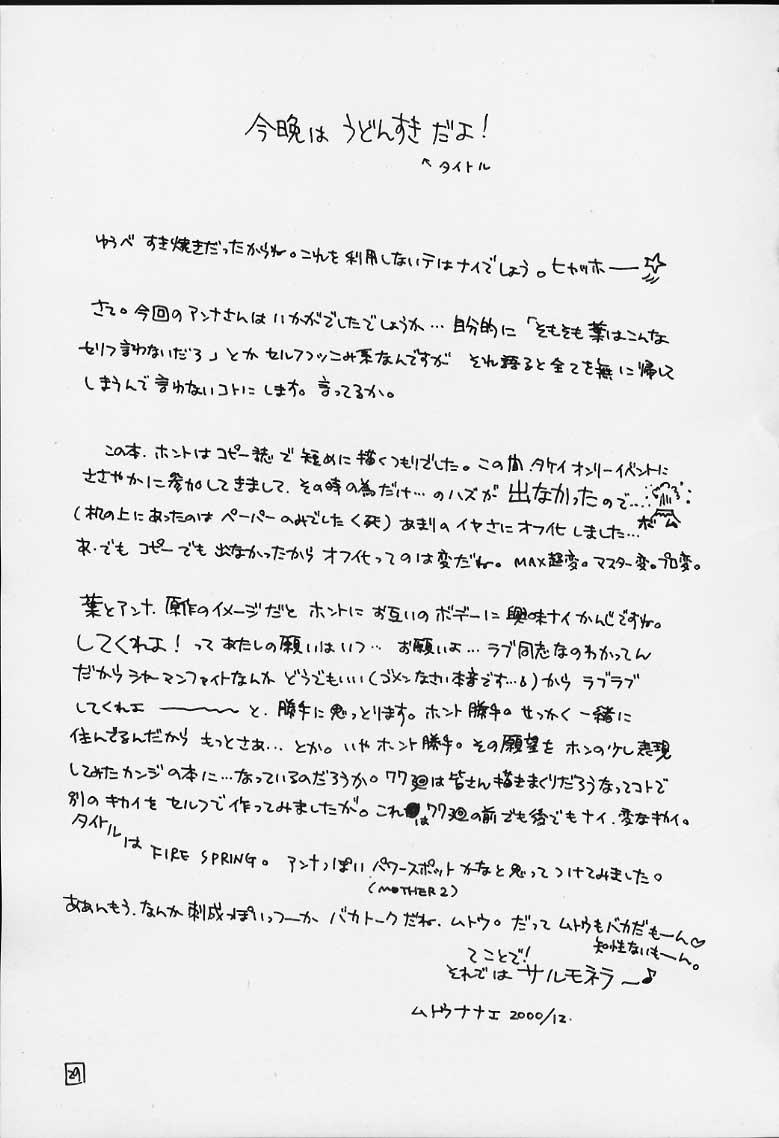 今晩は うどんすき だよ！
↖ タイトル
ゆうべ すき焼きだったからね。これを利用しないテはナイでしょう。ヒャッホー――☆
さて。今回のアンナさんはいかがでしたでしょうか… 自分的に「そもそも葉はこんな
セリフ言わないだろ」とか セルフツッこみ系なんですが それ語ると全てを無に帰して
しまうんで言わないコトにします。言ってるか。
この本、ホントはコピー誌で短めに描くつもりでした。この間、タケイオンリーイベントに
ささやかに参加してきまして、その時の為だけ…のハズが 出なかったので…。
ボム
(机の上にあったのは ペーパーのみでした〈死) あまりのイヤさにオフ化しました…
あ、でも コピーでも 出なかったから オフ化ってのは変だね。MAX超変。マスター変。プロ変。
葉とアンナ、原作のイメージだと ホントに お互いの ボデーに 興味ナイかんじですね。
してくれよ！って あたしの願いはいつ… お願いよ… ラブ同志なのわかってん
だから シャーマンファイトなんか どうでもいい (ゴメンなさい本音です…) から ラブラブ
してくれェ ――――〜 と、勝手に思っとります。ホント勝手。せっかく 一緒に
住んでるんだから もっとさぁ… とか。いや ホント勝手。その願望を ホンの少し表現
してみたカンジの本に…なっているのだろうか。77廻は皆さん描きまくりだろうなってコトで
別のキカイを セルフで作ってみましたが。これは77廻の前でも後でもナイ、変なキカイ。
タイトルは FIRE SPRING。 アンナっぽい パワースポットかなと思ってつけてみました。
(MOTHER2)
ああんもう、なんか 刺成っぽいっつーか バカトークだね、ムトウ。だって ムトウもバカだもーん♡
知性ないもーん。
てことで！
それでは サルモネラ〜♪
ムトウナナエ 2000/12.
29